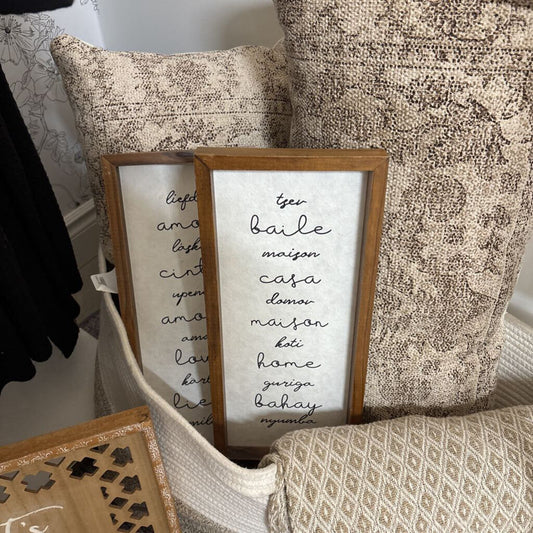 liefd
amo
lask
cint
upen
amo
ama
lov
kar
lie
mil
tsev
baile
maison
casa
domov
maison
koti
home
guriga
bahay
nyumba